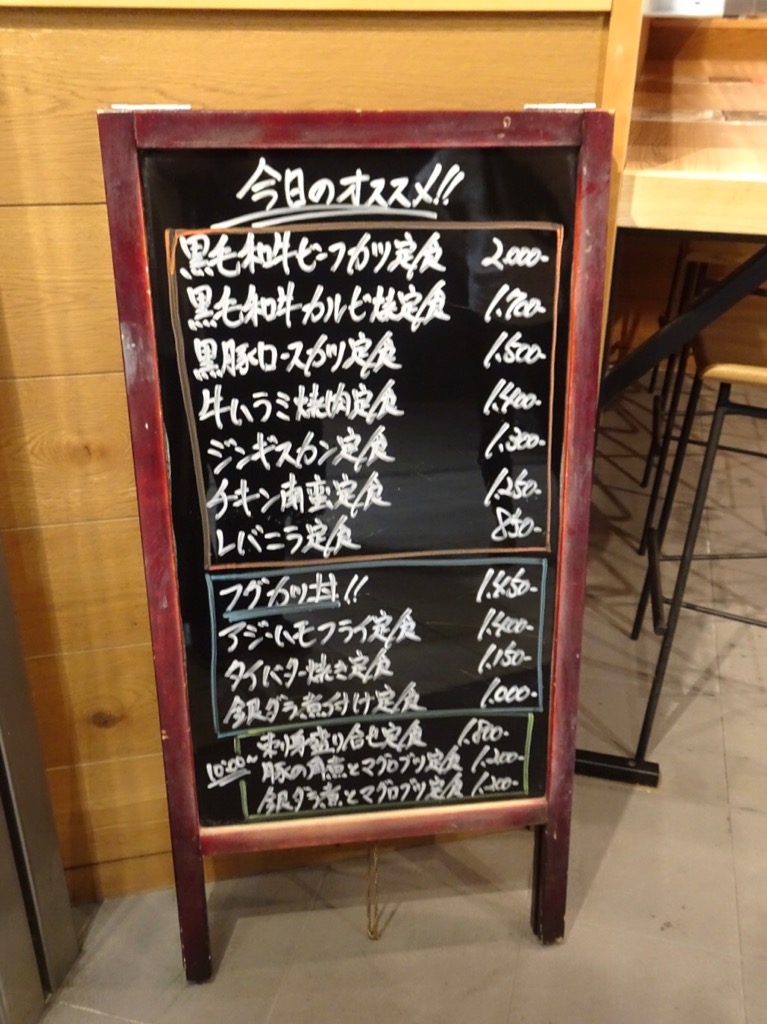 今日のオススメ!!
黒毛和牛ビーフカツ定食 2,000-
黒毛和牛カルビ焼定食 1,700-
黒豚ロースカツ定食 1,500-
牛ハラミ焼肉定食 1,400-
ジンギスカン定食 1,300-
チキン南蛮定食 1,250-
レバニラ定食 850-
フグカツ丼!! 1,450-
アジ・ハモフライ定食 1,400-
タイバター焼き定食 1,150-
銀ダラ煮付け定食 1,000-
刺身盛り合せ定食 1,800-
10:00~ 豚の角煮とマグロブツ定食 1,200-
銀ダラ煮とマグロブツ定食 1,200-